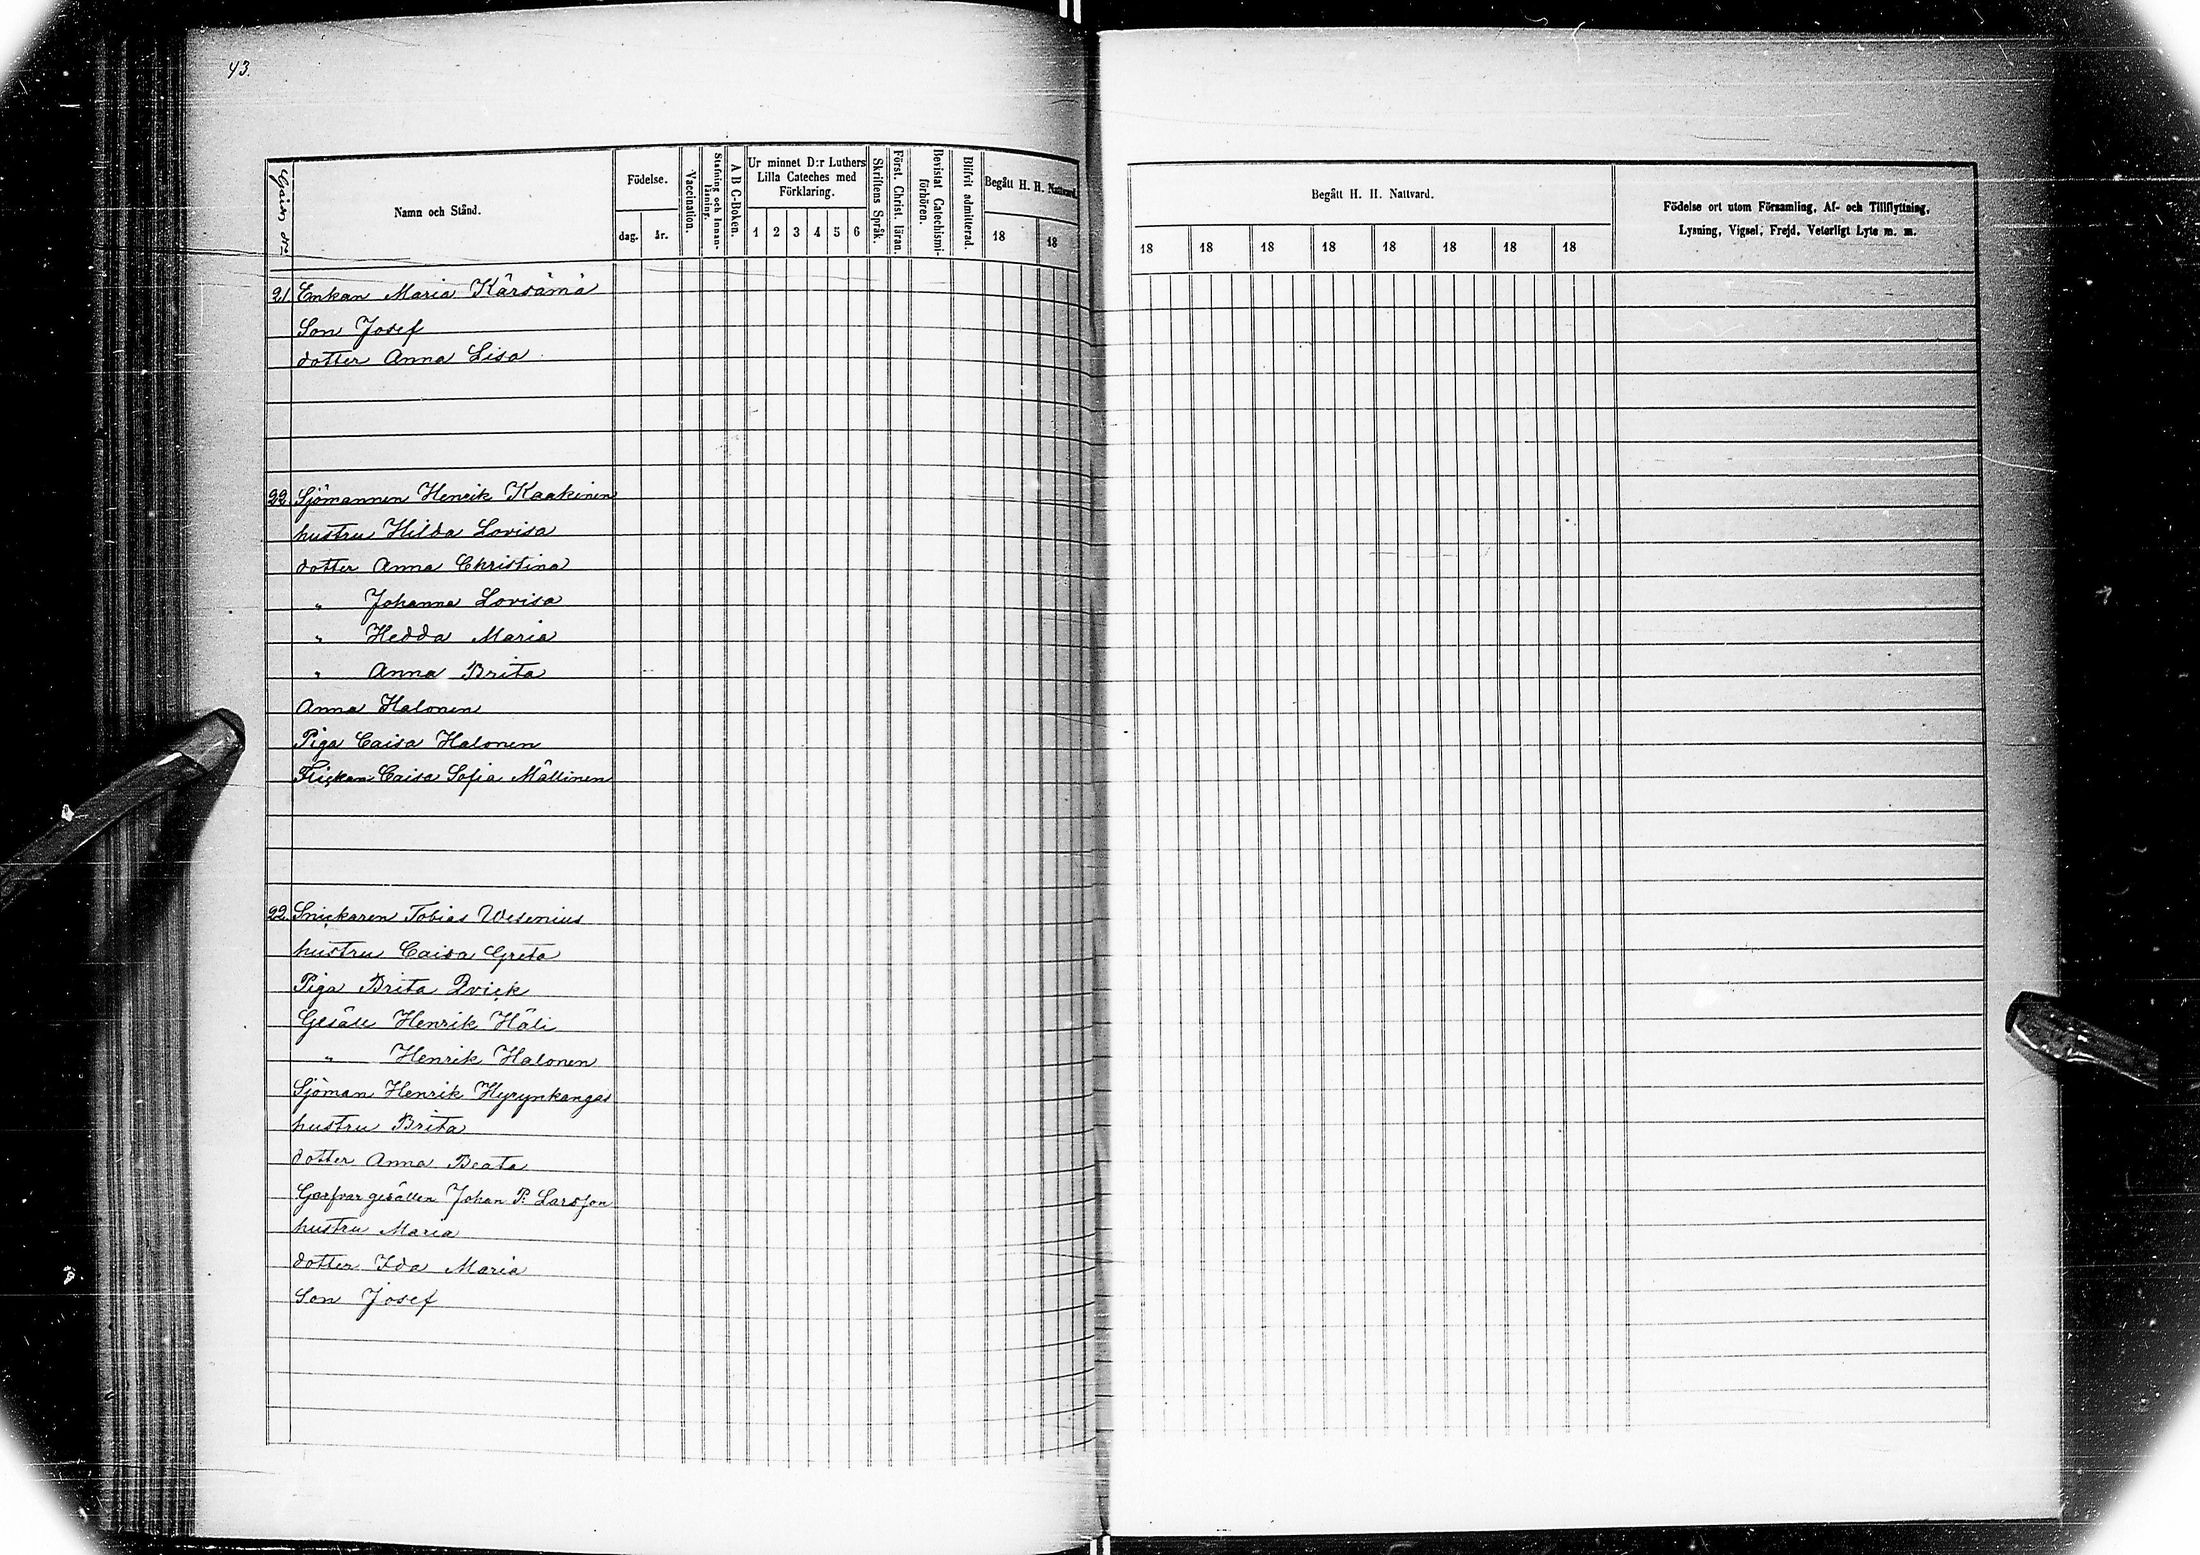 43.
Gård N:o
Namn och Stånd.
Födelse.
dag. år.
Vaccination.
Stafning och Innan-läsning.
A B C-Boken.
Ur minnet D:r Luthers
Lilla Cateches med
Förklaring.
1 2 3 4 5 6
Skriftens Språk.
Först. Christ. läran.
Bevistat Catechismi-förhören.
Blifvit admitterad.
Begått H. H. Nattvard.
18 18
Begått H. H. Nattvard.
18 18 18 18 18 18 18 18
Födelse ort utom Församling, Af- och Tillflyttning,
Lysning, Vigsel, Frejd, Veterligt Lyte m. m.
21 Enkan Maria Kärsämä
Son Josef
dotter Anna Lisa
22. Sjömannen Henrik Kaakinen
hustru Hilda Lovisa
dotter Anna Christina
" Johanna Lovisa
" Hedda Maria
" Anna Brita
Anna Halonen
Piga Caisa Halonen
Flickan Caisa Sofia Mällinen
22. Snickaren Tobias Wesenius
hustru Caisa Greta
Piga Brita Qvick
Gesäll Henrik Häli
" Henrik Halonen
Sjöman Henrik Hyrynkangas
hustru Brita
dotter Anna Beata
Garfvar gesällen Johan P. Larsson
hustru Maria
dotter Ida Maria
Son Josef